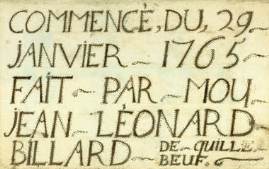 COMMENCÉ, DU, 29
JANVIER 1765
FAIT PAR MOY
JEAN LÉONARD
BILLARD DE QUILLE
BEUF.